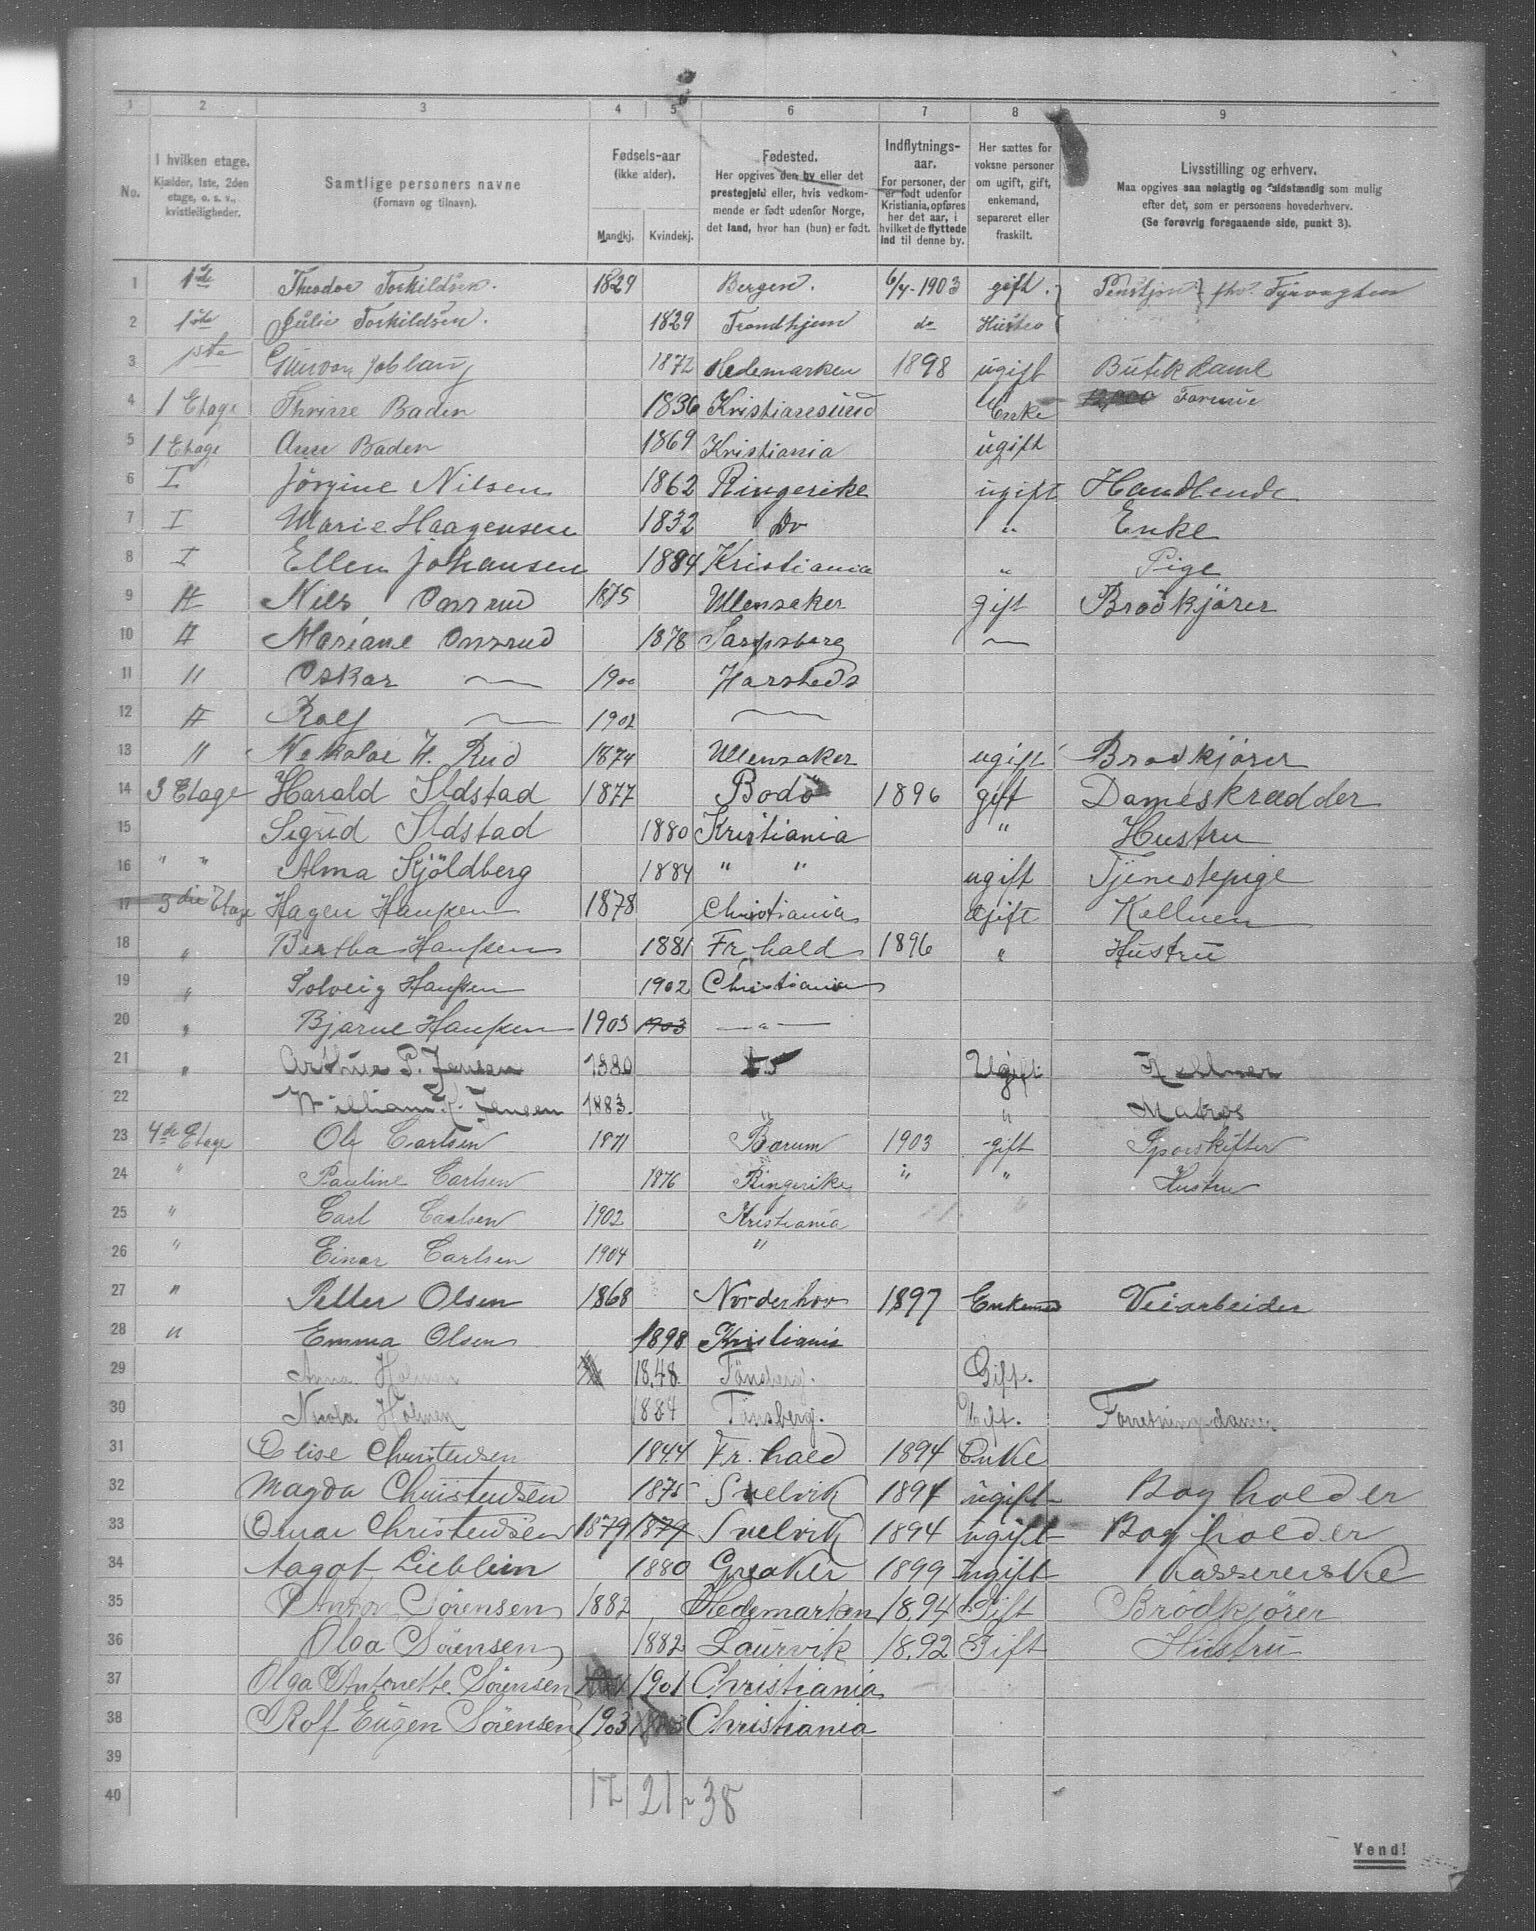 1 2 3 4 5 6 7 8 9
No. I hvilken etage. Kjælder, 1ste, 2den etage, o. s. v., kvistleiligheder. Samtlige personers navne (Fornavn og tilnavn). Fødsels-aar (ikke alder). Mandkj. Kvindekj. Fødested. Her opgives den by eller det prestegjeld eller, hvis vedkommende er født udenfor Norge, det land, hvor han (hun) er født. Indflytnings-aar. For personer, der er født udenfor Kristiania, opføres her det aar, i hvilket de flyttede ind til denne by. Her sættes for voksne personer om ugift, gift, enkemand, separeret eller fraskilt. Livsstilling og erhverv. Maa opgives saa nøiagtig og fuldstændig som mulig efter det, som er personens hovederhverv. (Se forøvrig foregaaende side, punkt 3).
1 1ste Theodor Torkildsen. 1829 Bergen. 6/4-1903 gift. Penstjon fhv. Fyrvogten
2 1ste Julie Torkildsen. 1829 Trondhjem do Hustro
3 1ste 1872 Hedemarken 1898 ugift Butikdame
4 1 Etage Thrine Baden 1836 Kristiansund Enke Formue
5 1 Etage Baden 1869 Kristiania ugift
6 I Jörgine Nilsen 1862 Ringerike ugift Handlende
7 I Marie Haagensen 1832 Do " Enke
8 I Ellen Johansen 1884 Kristiania " Pige
9 II Nils Onsrud 1875 Ullensaker gift Brödkjörer
10 II Mariane Onsrud 1878 Sarpsborg —
11 " Oskar — 1900 Harsteds
12 II Rolf — 1902 —
13 " Nekolai H. Rud 1874 Ullensaker ugift Brodkjörer
14 3 Etage Harald Ildstad 1877 Bodö 1896 gift Dameskrædder
15 Sigrid Ildstad 1880 Kristiania " Hustru
16 " " Alma Skjöldberg 1884 " " ugift Tjenestepige
17 3die Etage Hagen Hansen 1878 Christiania Gift Kellner
18 " Bertha Hansen 1881 Fr. hald 1896 " Hustru
19 " Solveig Hansen 1902 Christiania
20 " Bjarne Hansen 1903 1903 — " —
21 " Arthur P. Jensen 1880 Ugift Kellner
22 William K. Jensen 1883. " " Matros
23 4de Etage Ole Carlsen 1871 Bærum 1903 gift Sporskifter
24 " Pauline Carlsen 1876 Ringerike " " Hustru
25 " Carl Carlsen 1902 Kristiania
26 " Einar Carlsen 1904 "
27 " Petter Olsen 1868 Norderhov 1897 Enkemand Veiarbeider
28 " Emma Olsen 1898 Kristiania
29 Anna Holmen 1848 Tönsberg. Gift.
30 Holmen 1884 Tönsberg. Ugift. Forretningsdame.
31 Elise Christensen 1844 Fr. hald 1894 Enke
32 Magda Christensen 1875 Svelvik 1894 ugift Bogholder
33 Christensen 1879 1879 Svelvik 1894 ugift Bogholder
34 Aagot Lieblein 1880 Greaker 1899 ugift Kassererske
35 Anton Sörensen 1882 Hedemarken 1894 Gift Brödkjörer
36 Olga Sörensen 1882 Laurvik 1892 Gift Hustru
37 Olga Antonette Sörensen 1901 Christiania
38 Rolf Eugen Sörensen 1903 Christiania
39
40 17 21 - 38
Vend!